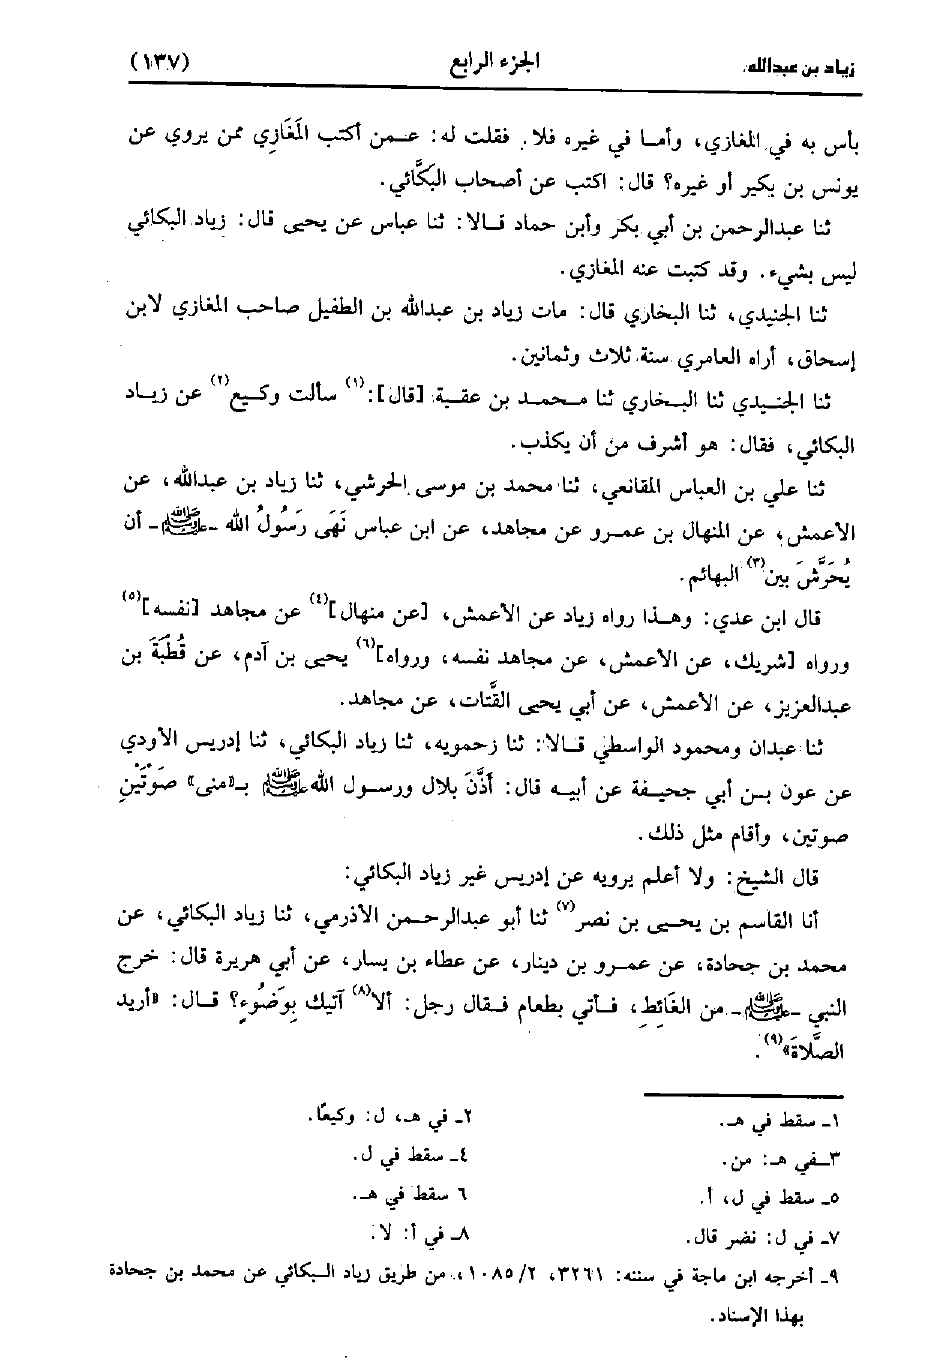 زياد بن عبدالله
الجزء الرابع
(١٣٧)
بأس به في المغازي، وأما في غيره فلا. فقلت له: عـمن أكتب المَغَازِي ممن يروي عن
يونس بن بكير أو غيره؟ قال: اكتب عن أصحاب البكَّائي.
ثنا عبدالرحمن بن أبي بكر وأبن حماد قـالا: ثنا عباس عن يحيى قال: زياد البكائي
ليس بشيء. وقد كتبت عنه المغازي.
ثنا الجنيدي، ثنا البخاري قال: مات زياد بن عبدالله بن الطفيل صاحب المغازي لابن
إسحاق، أراه العامري سنة ثلاث وثمانين.
ثنا الجنـيدي ثنا البـخاري ثنا مـحمـد بن عقبـة [قال]:(١) سألت وكـيع(٢) عن زيـاد
البكائي، فقال: هو أشرف من أن يكذب.
ثنا علي بن العباس المقانعي، ثنا محمد بن موسى الحرشي، ثنا زياد بن عبدالله، عن
الأعمش، عن المنهال بن عمـرو عن مجاهد، عن ابن عباس نَهَى رَسُولُ الله -ﷺ- أن
يُحَرَّشَ بين(٣) البهائم.
قال ابن عدي: وهـذا رواه زياد عن الأعمش، [عن منهال](٤) عن مجاهد [نفسه](٥)
ورواه [شريك، عن الأعمش، عن مجاهد نفسه، ورواه](٦) يحيى بن آدم، عن قُطْبَةَ بن
عبدالعزيز، عن الأعمش، عن أبي يحيى القَّتات، عن مجاهد.
ثنا عبدان ومحمود الواسطي قـالا: ثنا زحمويه، ثنا زياد البكائي، ثنا إدريس الأودي
عن عون بـن أبي جحيـفة عن أبيـه قال: أَذَّنَ بلال ورسـول اللهﷺ بـ«منى» صَوْتَيْنِ
صوتين، وأقام مثل ذلك.
قال الشيخ: ولا أعلم يرويه عن إدريس غير زياد البكائي:
أنا القاسم بن يحـيى بن نصر(٧) ثنا أبو عبدالرحـمن الأذرمي، ثنا زياد البكائي، عن
محمد بن جحادة، عن عمـرو بن دينار، عن عطاء بن يسار، عن أبي هريرة قال: خرج
النبي -ﷺ- من الغَائِطِ، فـأتي بطعام فـقال رجل: ألا(٨) آتيك بِوَضُوءٍ؟ قـال: «أريد
الصَّلاةَ»(٩).
١- سقط في هـ.
٢- في هـ، ل: وكيعًا.
٣-في هـ: من.
٤- سقط في ل.
٥- سقط في ل، أ.
٦ سقط في هـ.
٧- في ل: نضر قال.
٨- في أ: لا:
٩- أخرجه ابن ماجة في سننه: ٣٢٦١، ١٠٨٥/٢، من طريق زياد البكائي عن محمد بن جحادة
بهذا الإسناد.